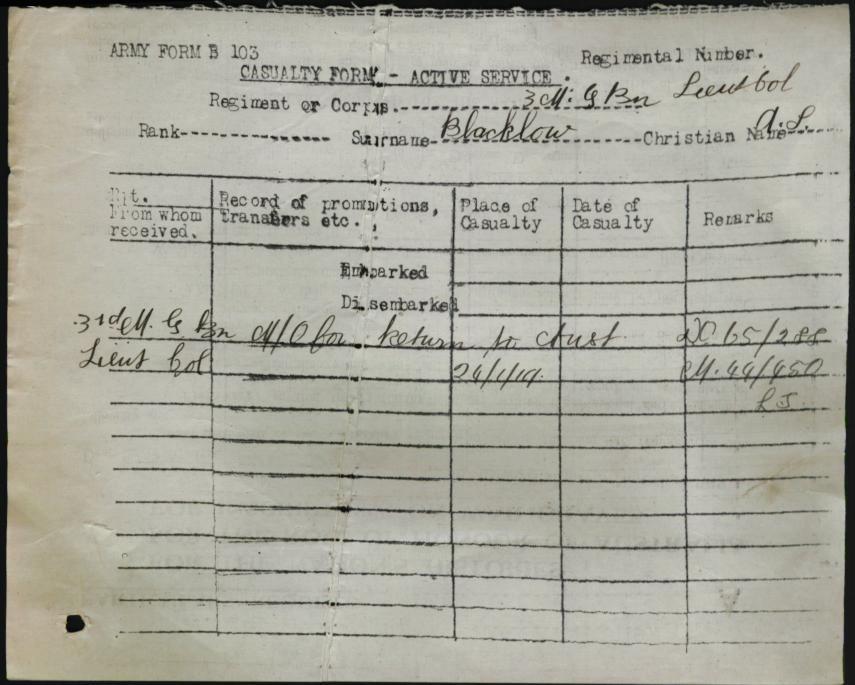 ARMY FORM B 103
Regimental Number.
CASUALTY FORM - ACTIVE SERVICE.
Regiment or Corps. 3 M. G Bn Lieut Col
Rank Surname Blacklow Christian Name A. L.
From whom received.
Record of promotions, transfers etc.,
Place of Casualty
Date of Casualty
Remarks
Embarked
Disembarked
3rd M. G Bn M/O for return to Aust DO 65/288
Lieut Col 24/1/19. M. 44/450